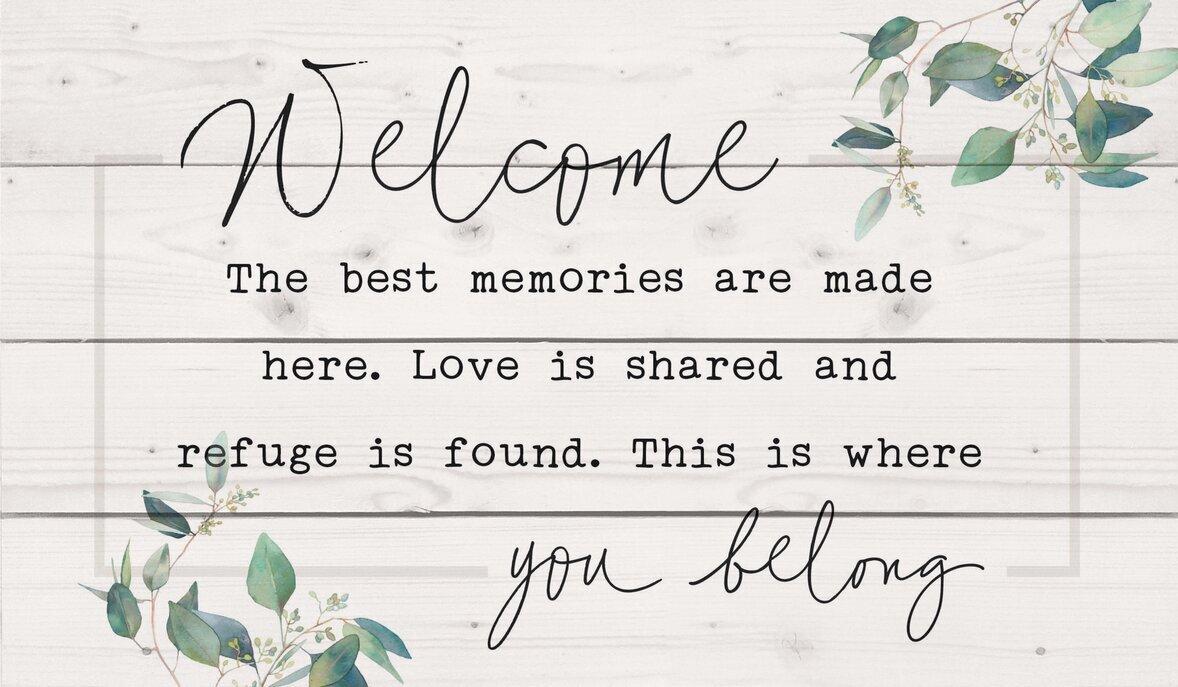 Welcome
The best memories are made
here. Love is shared and
refuge is found. This is where
you belong